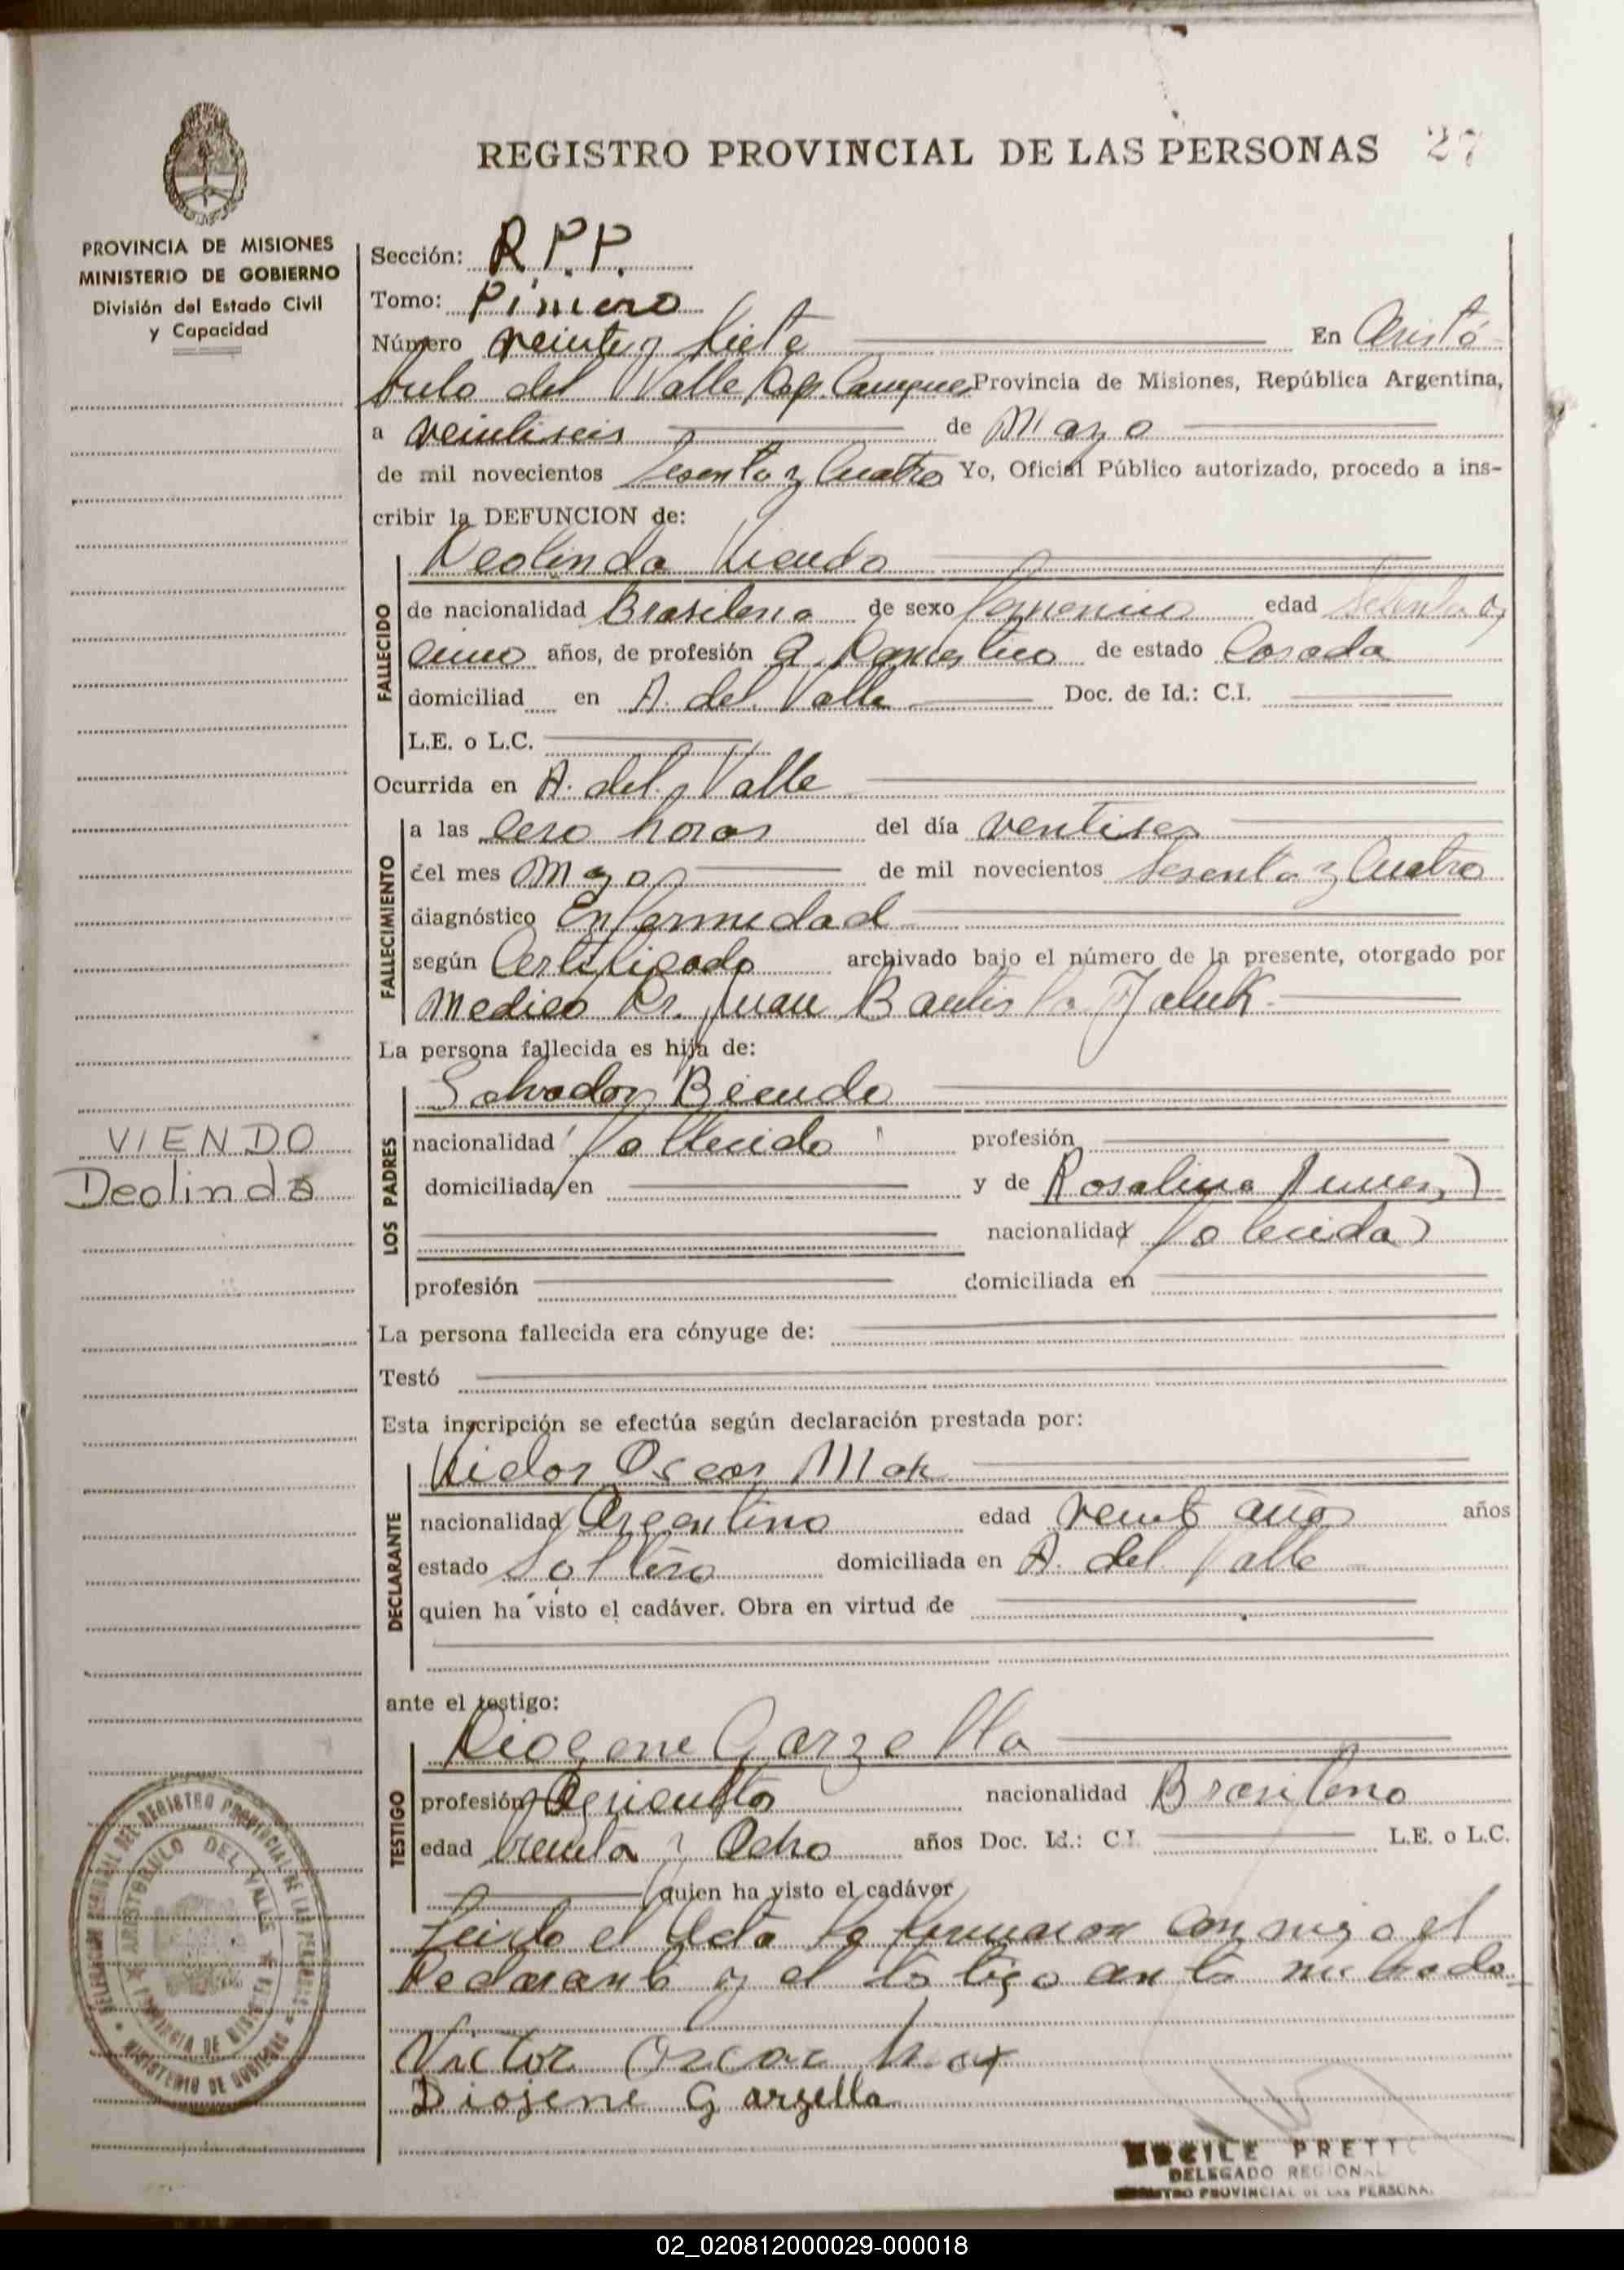 REGISTRO PROVINCIAL DE LAS PERSONAS 27
PROVINCIA DE MISIONES
MINISTERIO DE GOBIERNO
División del Estado Civil
y Capacidad
Sección: R.P.P.
Tomo: Primero
Número veinte y siete En Aristó
bulo del Valle Dep. Provincia de Misiones, República Argentina,
a veintiseis de Mayo
de mil novecientos Sesenta y Cuatro Yo, Oficial Público autorizado, procedo a ins-
cribir la DEFUNCION de:
Deolinda Viendo
FALLECIDO
de nacionalidad Brasilena de sexo femenino edad y
cinco años, de profesión Q. Domestico de estado Casada
domiciliad en A. del Valle Doc. de Id.: C.I.
L.E. o L.C.
Ocurrida en A. del Valle
FALLECIMIENTO
a las cero horas del día ventises
del mes Mayo de mil novecientos Sesenta y Cuatro
diagnóstico Enfermedad
según Certificado archivado bajo el número de la presente, otorgado por
Medico Dr. Juan Bautista
La persona fallecida es hija de:
LOS PADRES
Salvador Biendo
nacionalidad fallecido profesión
domiciliada en y de Rosalina
nacionalidad falecida
profesión domiciliada en
La persona fallecida era cónyuge de:
Testó
Esta inscripción se efectúa según declaración prestada por:
DECLARANTE
Victor Oscar
nacionalidad Argentino edad años
estado Soltero domiciliada en A. del Valle
quien ha visto el cadáver. Obra en virtud de
ante el testigo:
TESTIGO
Diogene Garzella
profesión nacionalidad Brasileno
edad treinta y Ocho años Doc. Id.: C.I. L.E. o L.C.
quien ha visto el cadáver
Leido el Acta la firmaron conmigo el
Declarante y el testigo
Victor Oscar
Diojene Garzella
VIENDO
Deolinda
DELEGACION REGIONAL DEL REGISTRO PROVINCIAL DE LAS PERSONAS
MINISTERIO DE GOBIERNO
ARISTOBULO DEL VALLE
PROVINCIA DE MISIONES
PRETTO
DELEGADO REGIONAL
REGISTRO PROVINCIAL DE LAS PERSONA.
02_020812000029-000018